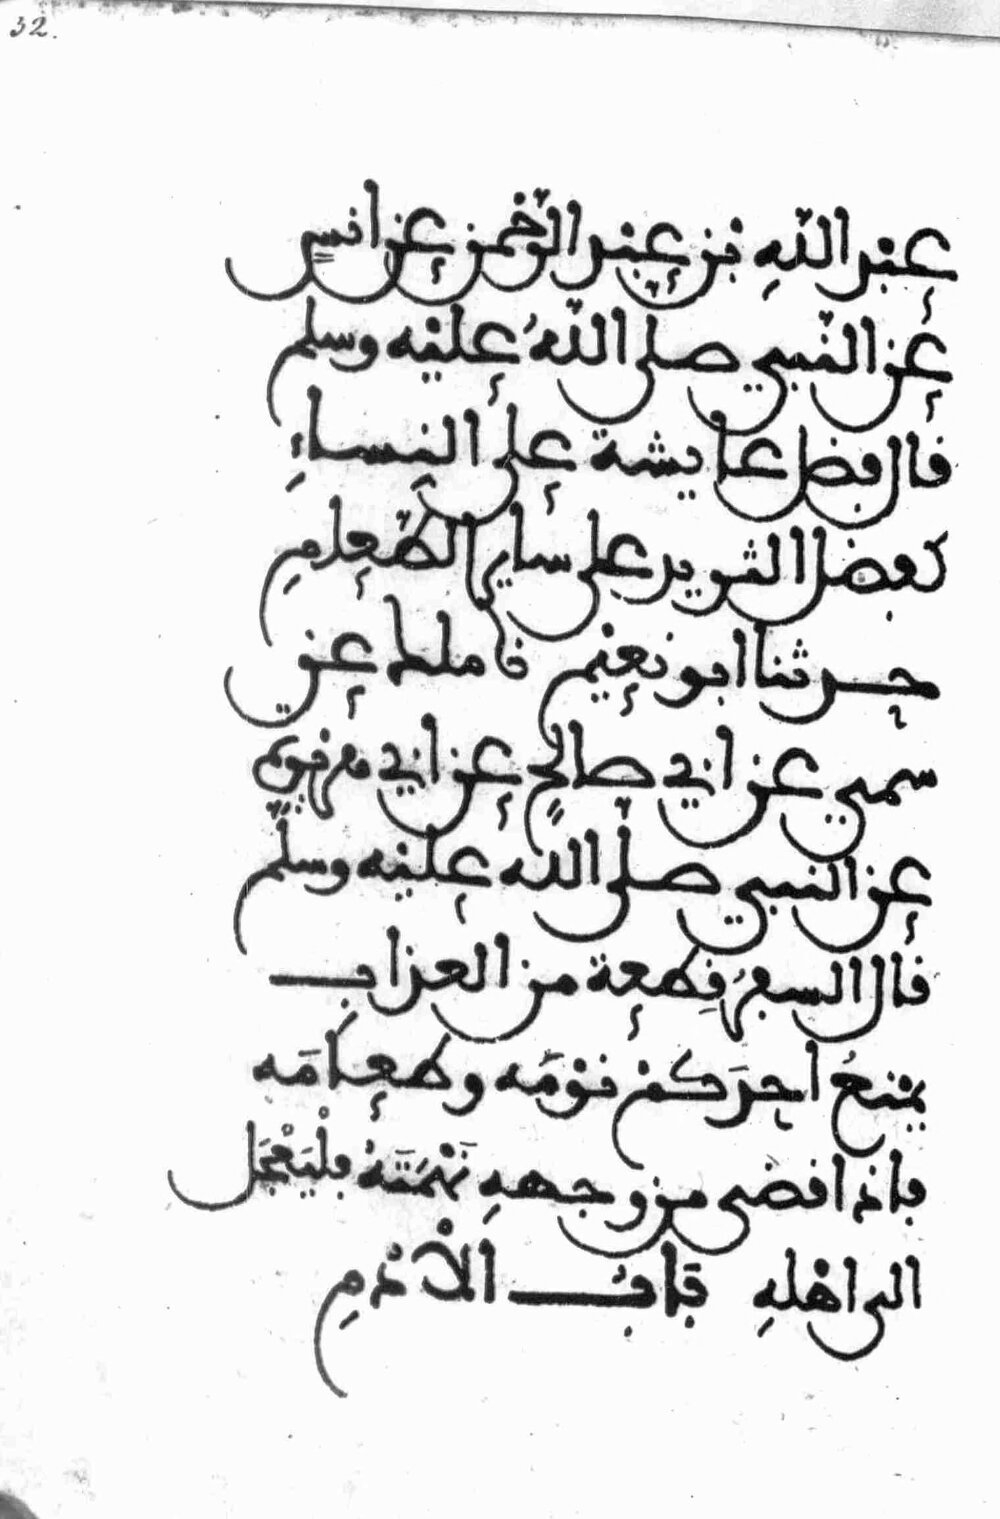 32.
عبد الله بن عبد الرحمن عن انسٍ
عن النبي صلى اللهُ عليه وسلم
قال فضل عايشة على النساءِ
كفضل الثريد على ساير الطعامِ
حدثنا ابو نعيم نا ملك عن
سمي عن ابي صالحٍ عن ابي هريرة
عن النبي صلى الله عليه وسلم
قال السفرُ قِطعة من العذاب
يمنعُ احدَكمْ نوْمَه وطعامَه
فاذا قضى من وجههِ نَهْمَتَهُ فلْيَعْجَل
الى اهْلهِ بابُ الاُدْمِ